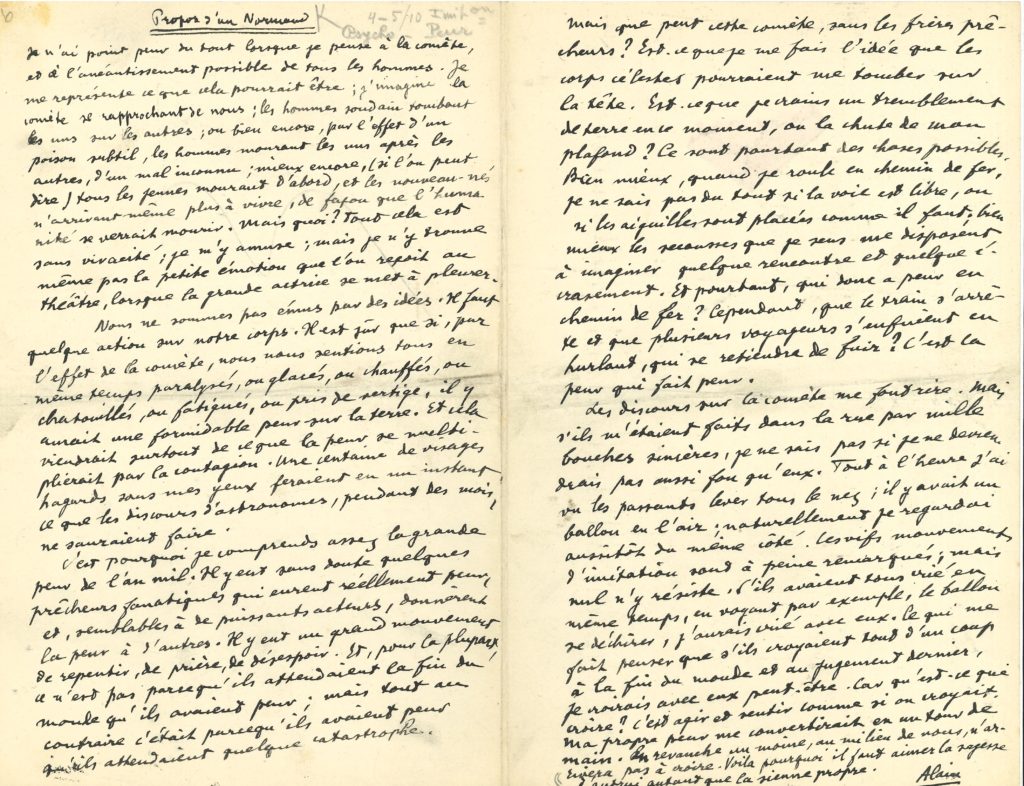 6
Propos d'un Normand
4-5/10 Imit on
Psycho - Peur
Je n'ai point peur du tout lorsque je pense à la comète,
et à l'anéantissement possible de tous les hommes. Je
me représente ce que cela pourrait être ; j'imagine la
comète se rapprochant de nous ; les hommes soudain tombant
les uns sur les autres ; ou bien encore, par l'effet d'un
poison subtil, les hommes mourant les uns après les
autres, d'un mal inconnu ; mieux encore, (si l'on peut
dire) tous les jeunes mourant d'abord, et les nouveau-nés
n'arrivant même plus à vivre, de façon que l'huma-
nité se verrait mourir. Mais quoi ? Tout cela est
sans vivacité ; je m'y amuse ; mais je n'y trouve
même pas la petite émotion que l'on reçoit au
théâtre, lorsque la grande actrice se met à pleurer.
Nous ne sommes pas émus par des idées. Il faut
quelque action sur notre corps. Il est sûr que si, par
l'effet de la comète, nous nous sentions tous en
même temps paralysés, ou glacés, ou chauffés, ou
chatouillés, ou fatigués, ou pris de vertige, il y
aurait une formidable peur sur la terre. Et cela
viendrait surtout de ce que la peur se multi-
plierait par la contagion. Une centaine de visages
hagards sous mes yeux feraient en un instant
ce que les discours d'astronomes, pendant des mois,
ne sauraient faire.
C'est pourquoi je comprends assez la grande
peur de l'an mil. Il y eut sans doute quelques
prêcheurs fanatiques qui eurent réellement peur,
et, semblables à de puissants acteurs, donnèrent
la peur à d'autres. Il y eut un grand mouvement
de repentir, de prière, de désespoir. Et, pour la plupart,
ce n'est pas parce qu'ils attendaient la fin du
monde qu'ils avaient peur ; mais tout au
contraire c'était parce qu'ils avaient peur
qu'ils attendaient quelque catastrophe..
Mais que peut cette comète, sans les frères prê-
cheurs ? Est-ce que je me fais l'idée que les
corps célestes pourraient me tomber sur
la tête. Est-ce que je crains un tremblement
de terre en ce moment, ou la chute de mon
plafond ? Ce sont pourtant des choses possibles.
Bien mieux, quand je roule en chemin de fer,
je ne sais pas du tout si la voie est libre, ou
si les aiguilles sont placées comme il faut ; bien
mieux les secousses que je sens me disposent
à imaginer quelque rencontre et quelque é-
crasement. Et pourtant, qui donc a peur en
chemin de fer ? Cependant, que le train s'arrê-
te et que plusieurs voyageurs s'enfuient en
hurlant, qui se retiendra de fuir ? C'est la
peur qui fait peur.
Les discours sur la comète me font rire. Mais
s'ils m'étaient faits dans la rue par mille
bouches sincères, je ne sais pas si je ne devien-
drais pas aussi fou qu'eux. Tout à l'heure j'ai
vu les passants lever tous le nez ; il y avait un
ballon en l'air ; naturellement je regardai
aussitôt du même côté. Ces vifs mouvements
d'imitation sont à peine remarqués ; mais
nul n'y résiste. S'ils avaient tous crié en
même temps, en voyant par exemple, le ballon
se déchirer, j'aurais crié avec eux. Ce qui me
fait penser que s'ils croyaient tout d'un coup
à la fin du monde et au jugement dernier,
je croirais avec eux peut-être. Car qu'est-ce que
croire ? C'est agir et sentir comme si on croyait.
Ma propre peur me convertirait en un tour de
main. En revanche un moine, au milieu de nous, n'ar-
rivera pas à croire. Voilà pourquoi il faut aimer la sagesse
d'autrui autant que la sienne propre.
Alain